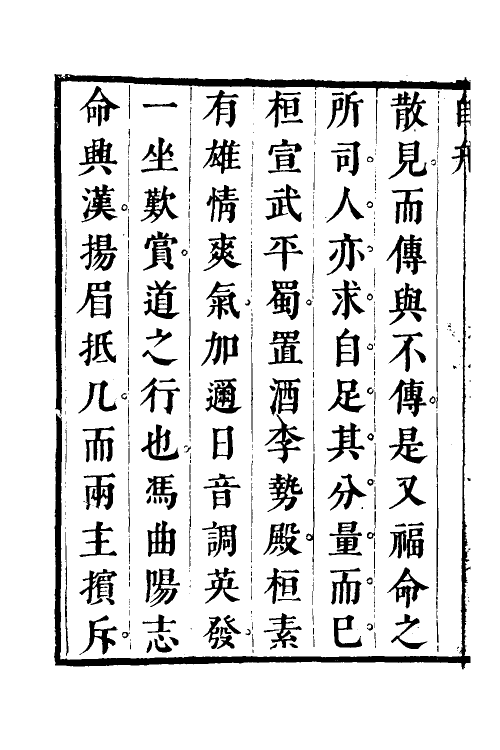 散見而傳與不傳是又福命之
所司人亦求自足其分量而巳
桓宣武平蜀置酒李勢殿桓素
有雄情爽氣加邇日音調英發
一坐歎賞道之行也馮曲陽志
命興漢揚眉抵几而兩主擯斥